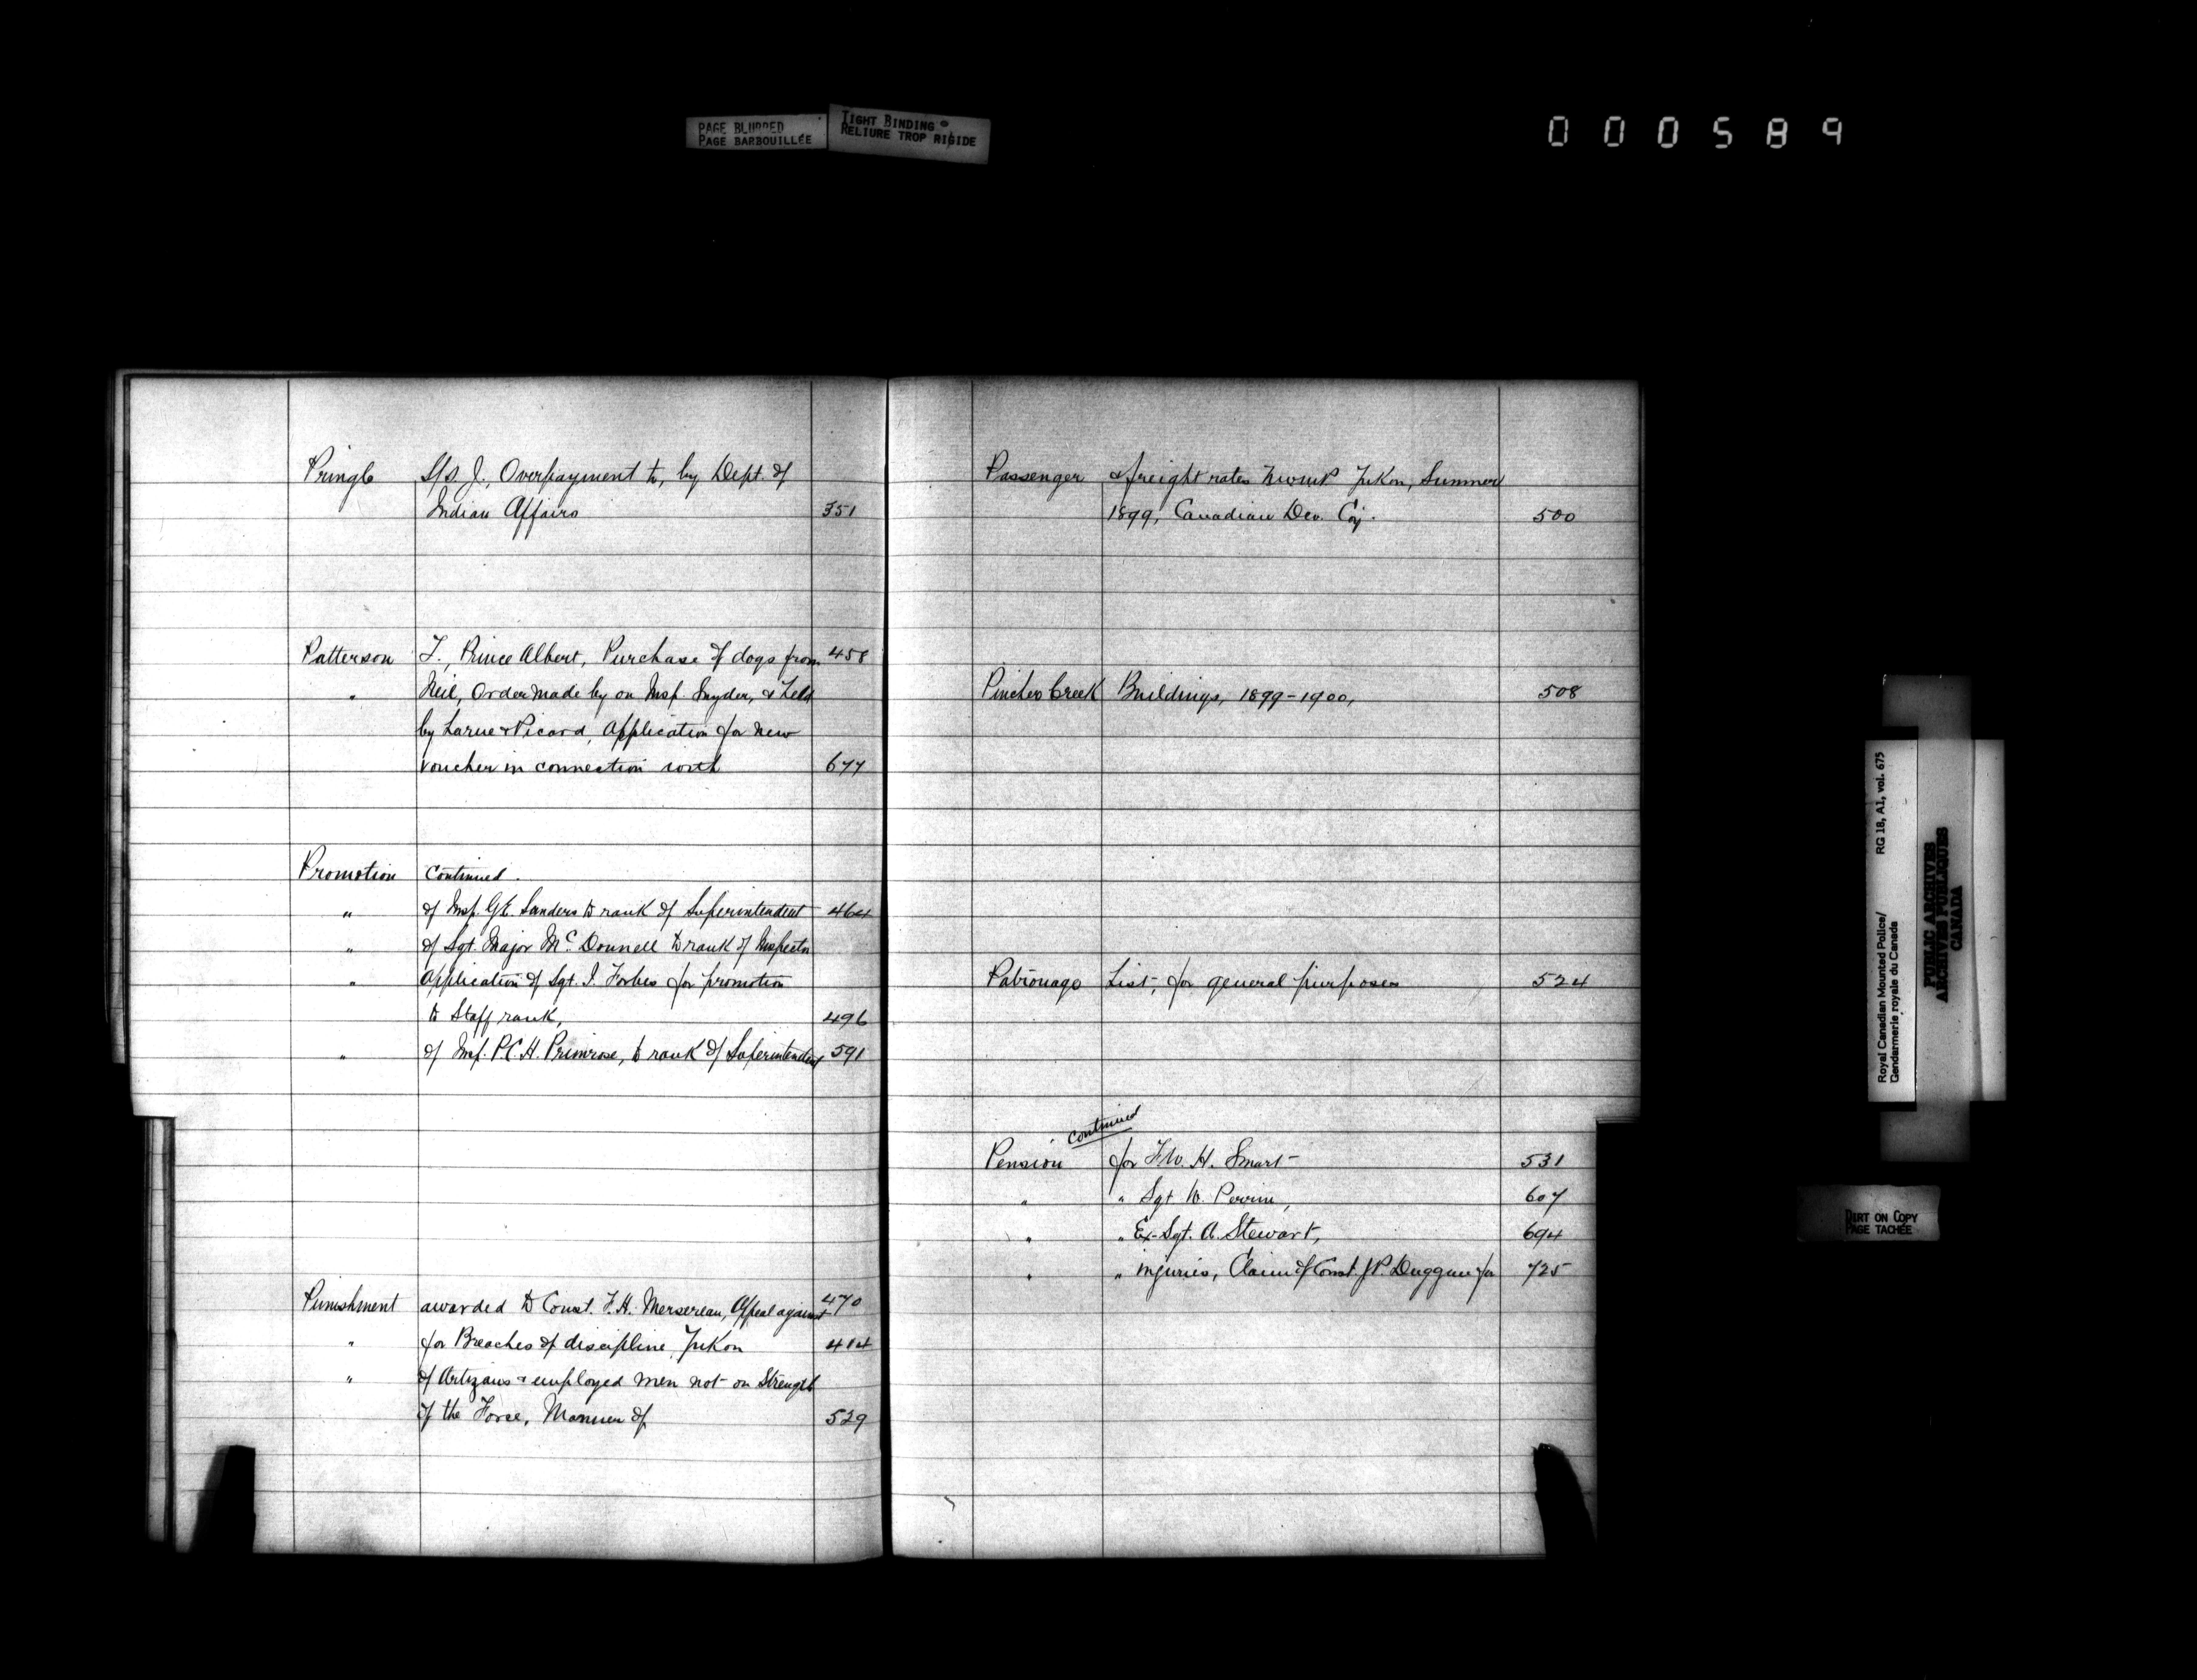 PAGE BLURRED
PAGE BARBOUILLÉE
TIGHT BINDING
RELIURE TROP RIGIDE
000589
Pringle S/S. J., Overpayment to, by Dept. of
Indian Affairs 351
Patterson T., Prince Albert, Purchase of dogs from 458
" Neil, Order made by on Insp. Snyder, & held
by Larue & Picard, Application for new
voucher in connection with 677
Promotion Continued.
" of Insp. G.E. Sanders to rank of Superintendent 464
" of Sgt. Major McDonnell to rank of Inspector
" Application of Sgt. J. Forbes for promotion
to Staff rank, 496
" of Insp. P.C.H. Primrose, to rank of Superintendent 591
Punishment awarded to Const. F.H. Mersereau, Appeal against 470
" for Breaches of discipline, Yukon 414
" of Artizans & employed men not on Strength
of the Force, Manner of 529
Passenger & freight rates NWMP Yukon, Summer
1899, Canadian Dev. Coy. 500
Pincher Creek Buildings, 1899-1900, 508
Patronage List, for general purposes 524
continued
Pension for F.W.H. Smart 531
" " Sgt W. Perrin, 607
" " Ex-Sgt. A. Stewart, 694
" " injuries, Claim of Const. J.P. Duggan for 725
Royal Canadian Mounted Police/ RG 18, A1, vol. 675
Gendarmerie royale du Canada
PUBLIC ARCHIVES
ARCHIVES PUBLIQUES
CANADA
DIRT ON COPY
PAGE TACHÉE